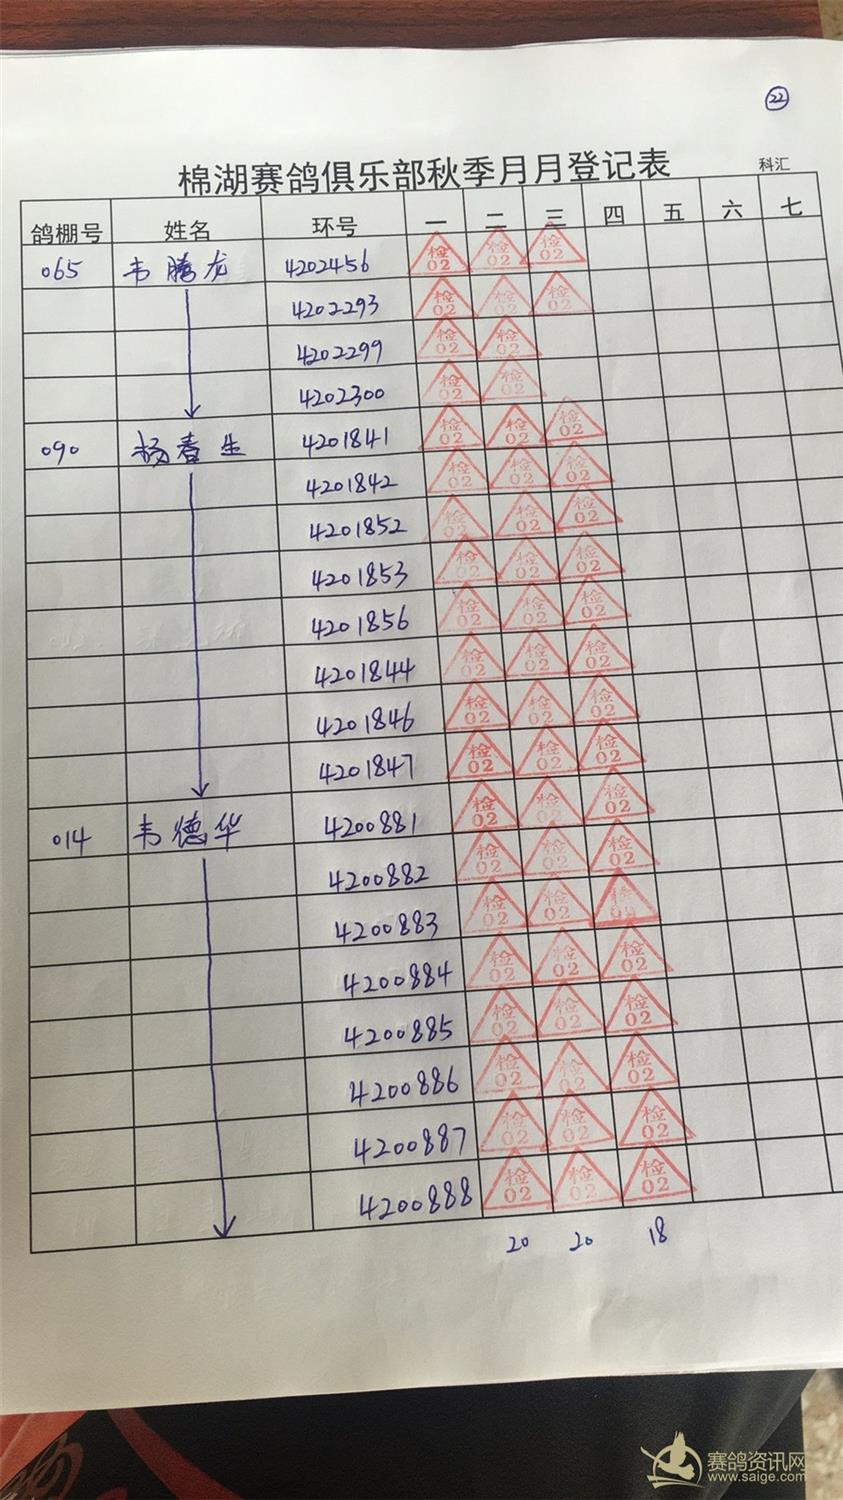 22
棉湖赛鸽俱乐部秋季月月登记表 科汇
鸽棚号 姓名 环号 一 二 三 四 五 六 七
065 韦腾龙 4202456 检02 检02 检02
4202293 检02 检02 检02
4202299 检02 检02
4202300 检02 检02
090 杨春生 4201841 检02 检02 检02
4201842 检02 检02 检02
4201852 检02 检02 检02
4201853 检02 检02 检02
4201856 检02 检02 检02
4201844 检02 检02 检02
4201846 检02 检02 检02
4201847 检02 检02 检02
014 韦德华 4200881 检02 检02 检02
4200882 检02 检02 检02
4200883 检02 检02 检
4200884 检02 检02 检02
4200885 检02 检02 检02
4200886 检02 检02 检02
4200887 检02 检02 检02
4200888 检02 检02 检02
20 20 18
赛鸽资讯网
www.saige.com